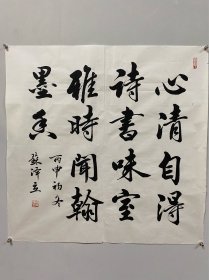 心清自得
詩書味室
雅時聞翰
墨香
丙申初冬
蘇澤立